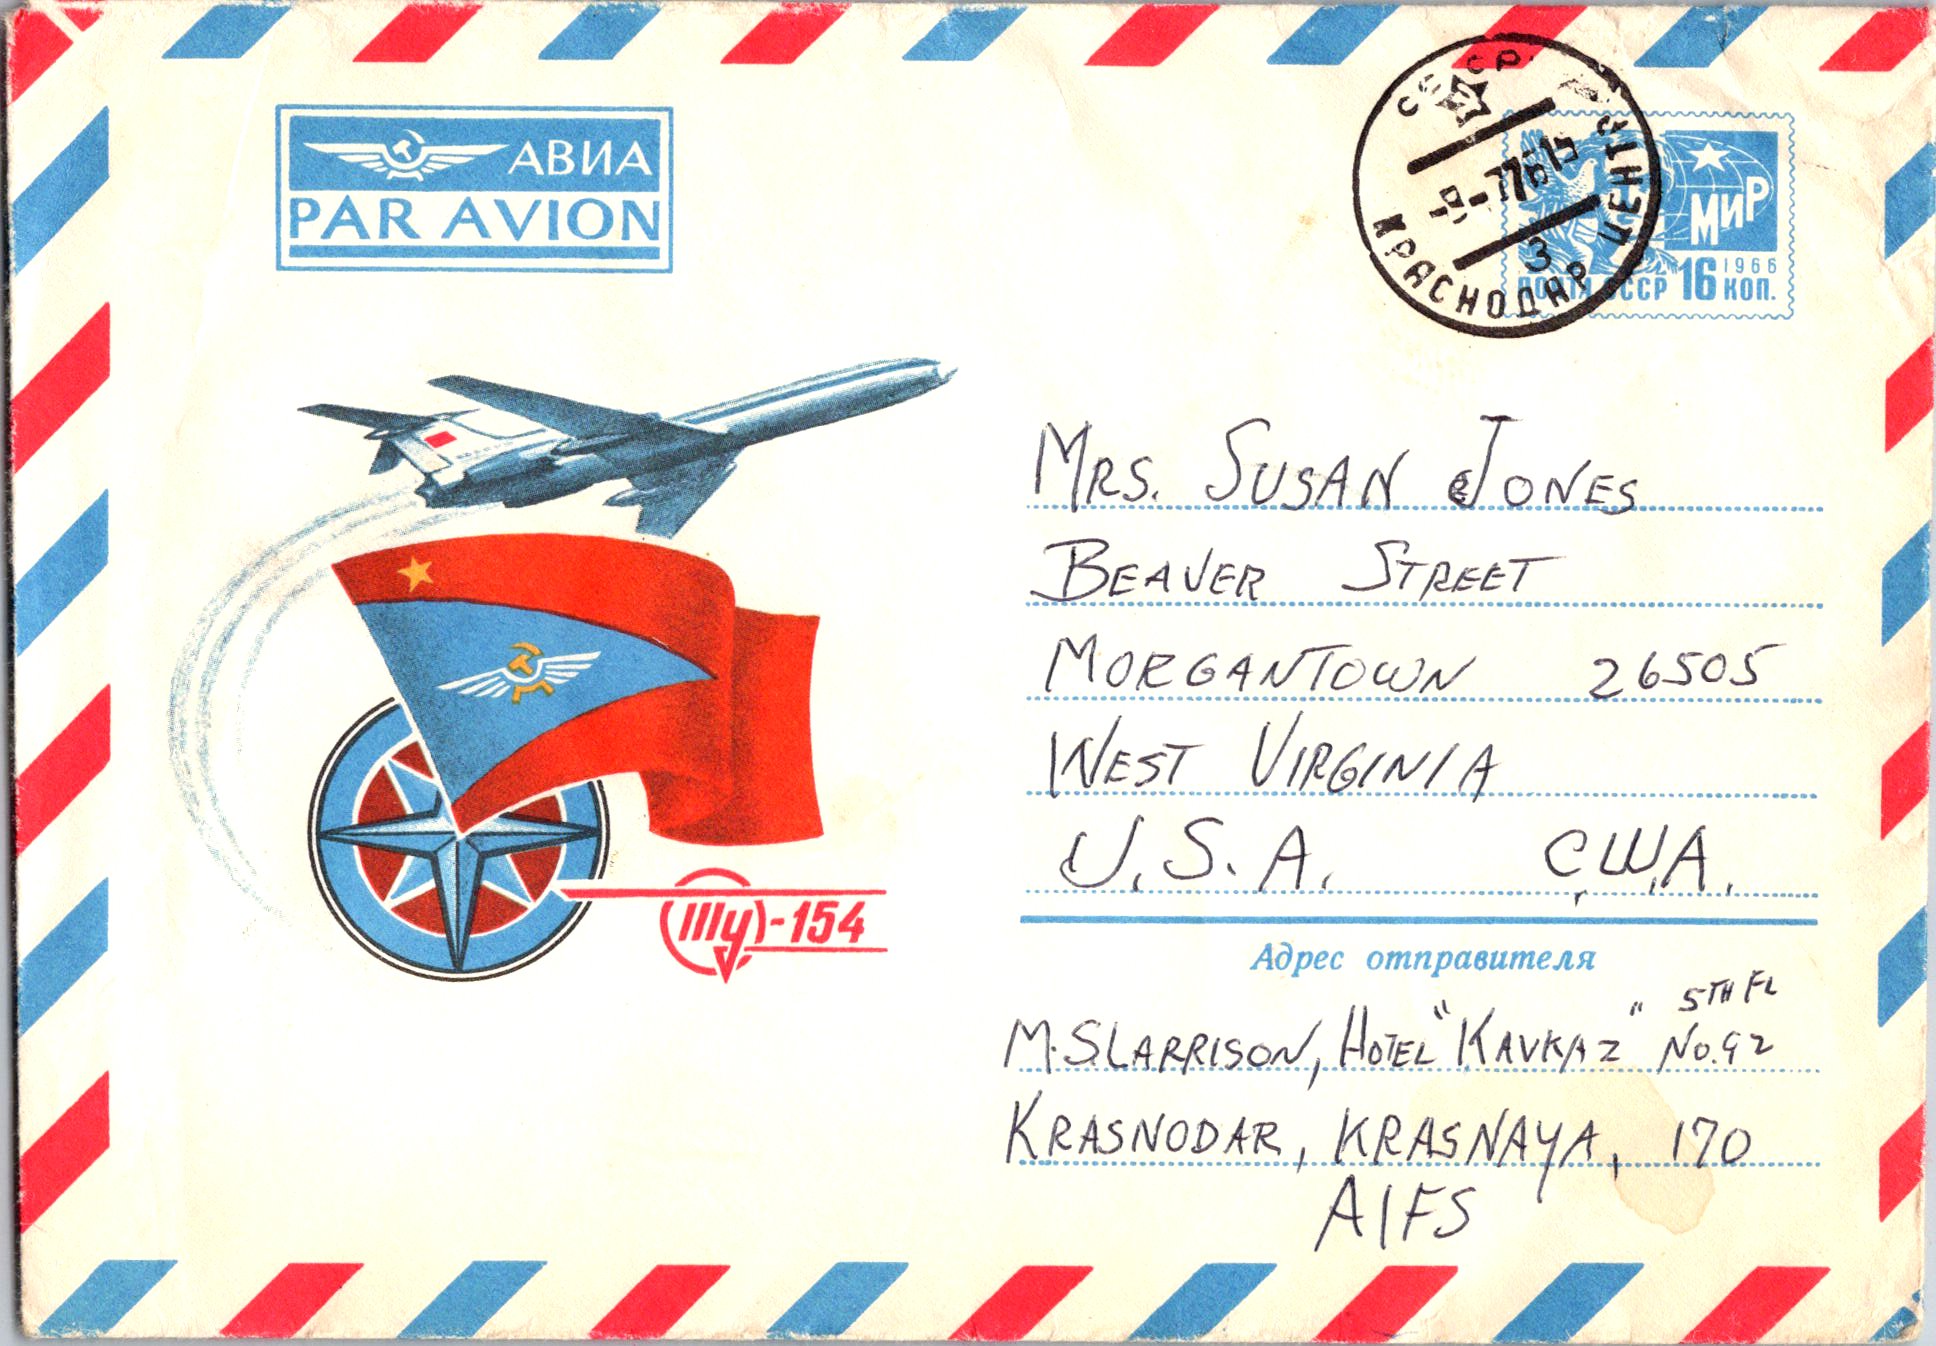 АВИА
PAR AVION
СССР
-9-7 76 15
3
КРАСНОДАР
МИР
1966
ПОЧТА СССР 16 КОП.
MRS. SUSAN JONES
BEAVER STREET
MORGANTOWN 26505
WEST VIRGINIA
U.S.A. С.Ш.А.
(Ту)-154
Адрес отправителя
5TH FL
M.S. LARRISON, HOTEL "KAVKAZ" No. 92
KRASNODAR, KRASNAYA, 170
AIFS